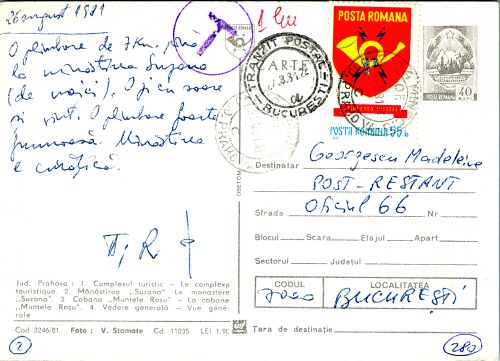 26 august 1981
O plimbare de 7 km, până
la mănăstirea Suzana
(de maici). O zi cu soare
și vânt. O plimbare foarte
frumoasă. Mănăstirea
e
T
1 leu
TRANZIT POSTAL
ARTE
BUCUREȘTI
POSTA ROMANA
POSTA ROMANA 55 b
POSTA ROMANA
40
PRAHOVA
Destinatar Georgescu Madeleine
POST-RESTANT
Strada Oficiul 66 Nr
Blocul Scara Etajul Apart.
Sectorul Județul
CODUL LOCALITATEA
7000 BUCUREȘTI
Țara de destinație
Jud. Prahova : 1. Complexul turistic — Le complexe
touristique. 2. Mănăstirea „Suzana". Le monastère
„Suzana". 3. Cabana „Muntele Roșu" — La cabane
„Muntele Roșu". 4. Vedere generală — Vue géné-
rale
Cod 3246/81 Foto : V. Stamate Cd. 11035 LEI 1,90
2
280